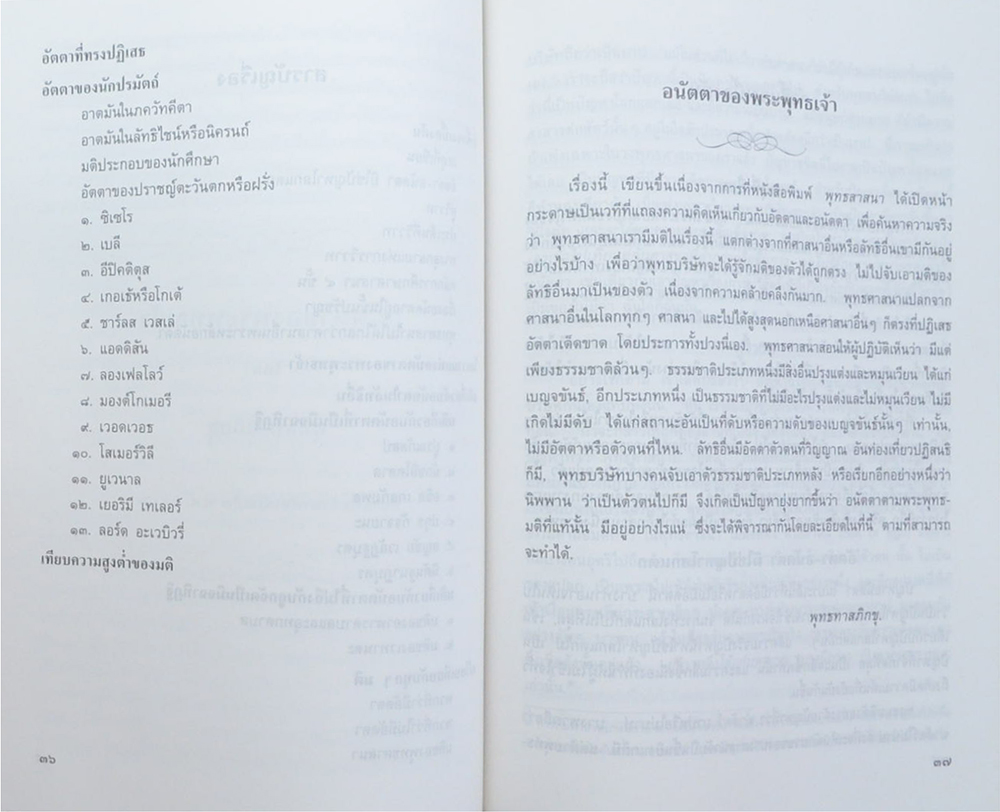 อัตตาที่ทรงปฏิเสธ
อัตตาของนักปรมัตถ์
อาตมันในภควัทคีตา
อาตมันในลัทธิไชน์หรือนิครนถ์
มติประกอบของนักศึกษา
อัตตาของปราชญ์ตะวันตกหรือฝรั่ง
๑. ซิเซโร
๒. เบลี
๓. อีปิคติตุส
๔. เกอเธ้หรือโกเต้
๕. ชาร์ลส เวสเล่
๖. แอดดิสัน
๗. ลองเฟลโลว์
๘. มองต์โกเมอรี
๙. เวอดเวอธ
๑๐. โสเมอร์วิลี
๑๑. ยูเวนาล
๑๒. เยอริมี เทเลอร์
๑๓. ลอร์ด อะเวบิวรี่
เทียบความสูงต่ำของมติ
๓๖
อนัตตาของพระพุทธเจ้า
เรื่องนี้ เขียนขึ้นเนื่องจากการที่หนังสือพิมพ์ พุทธสาสนา ได้เปิดหน้า
กระดาษเป็นเวทีที่แถลงความคิดเห็นเกี่ยวกับอัตตาและอนัตตา เพื่อค้นหาความจริง
ว่า พุทธศาสนาเรามีมติในเรื่องนี้ แตกต่างจากที่ศาสนาอื่นหรือลัทธิอื่นเขามีกันอยู่
อย่างไรบ้าง เพื่อว่าพุทธบริษัทจะได้รู้จักมติของตัวได้ถูกตรง ไม่ไปจับเอามติของ
ลัทธิอื่นมาเป็นของตัว เนื่องจากความคล้ายคลึงกันมาก. พุทธศาสนาแปลกจาก
ศาสนาอื่นในโลกทุกๆ ศาสนา และไปได้สูงสุดนอกเหนือศาสนาอื่นๆ ก็ตรงที่ปฏิเสธ
อัตตาเด็ดขาด โดยประการทั้งปวงนี่เอง. พุทธศาสนาสอนให้ผู้ปฏิบัติเห็นว่า มีแต่
เพียงธรรมชาติล้วนๆ. ธรรมชาติประเภทหนึ่งมีสิ่งอื่นปรุงแต่งและหมุนเวียน ได้แก่
เบญจขันธ์, อีกประเภทหนึ่ง เป็นธรรมชาติที่ไม่มีอะไรปรุงแต่งและไม่หมุนเวียน ไม่มี
เกิดไม่มีดับ ได้แก่สถานะอันเป็นที่ดับหรือความดับของเบญจขันธ์นั้นๆ เท่านั้น,
ไม่มีอัตตาหรือตัวตนที่ไหน. ลัทธิอื่นมีอัตตาตัวตนที่วิญญาณ อันท่องเที่ยวปฏิสนธิ
ก็มี, พุทธบริษัทบางคนจับเอาตัวธรรมชาติประเภทหลัง หรือเรียกอีกอย่างหนึ่งว่า
นิพพาน ว่าเป็นตัวตนไปก็มี จึงเกิดเป็นปัญหายุ่งยากขึ้นว่า อนัตตาตามพระพุทธ-
มติที่แท้นั้น มีอยู่อย่างไรแน่ ซึ่งจะได้พิจารณากันโดยละเอียดในที่นี้ ตามที่สามารถ
จะทำได้.
พุทธทาสภิกขุ.
๓๗